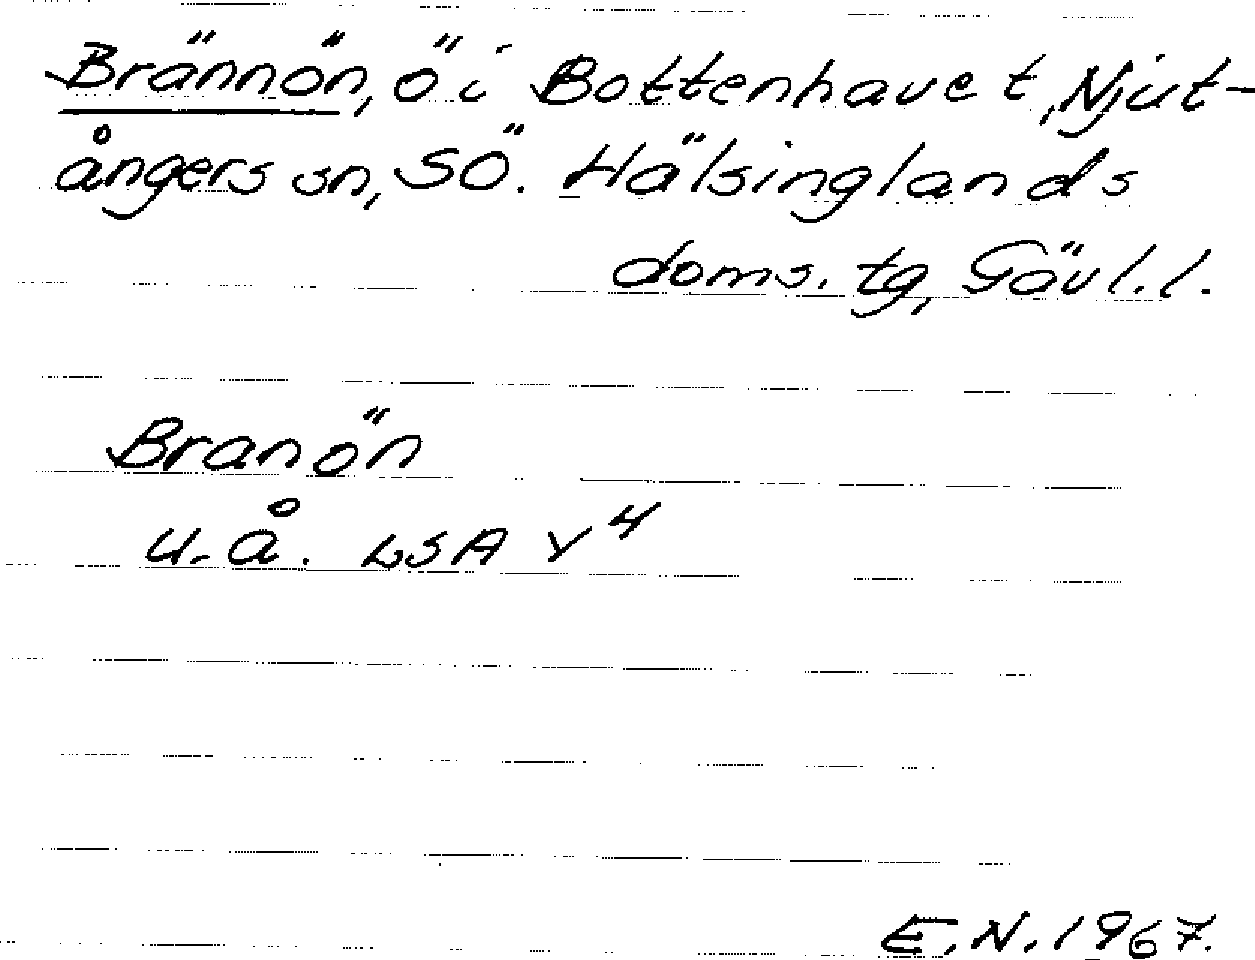 Brännön, ö i Bottenhavet, Njut-
ångers sn, SÖ. Hälsinglands
doms. tg, Gävl. l.
Branön
u. å. LSA v 4
E. N. 1967.